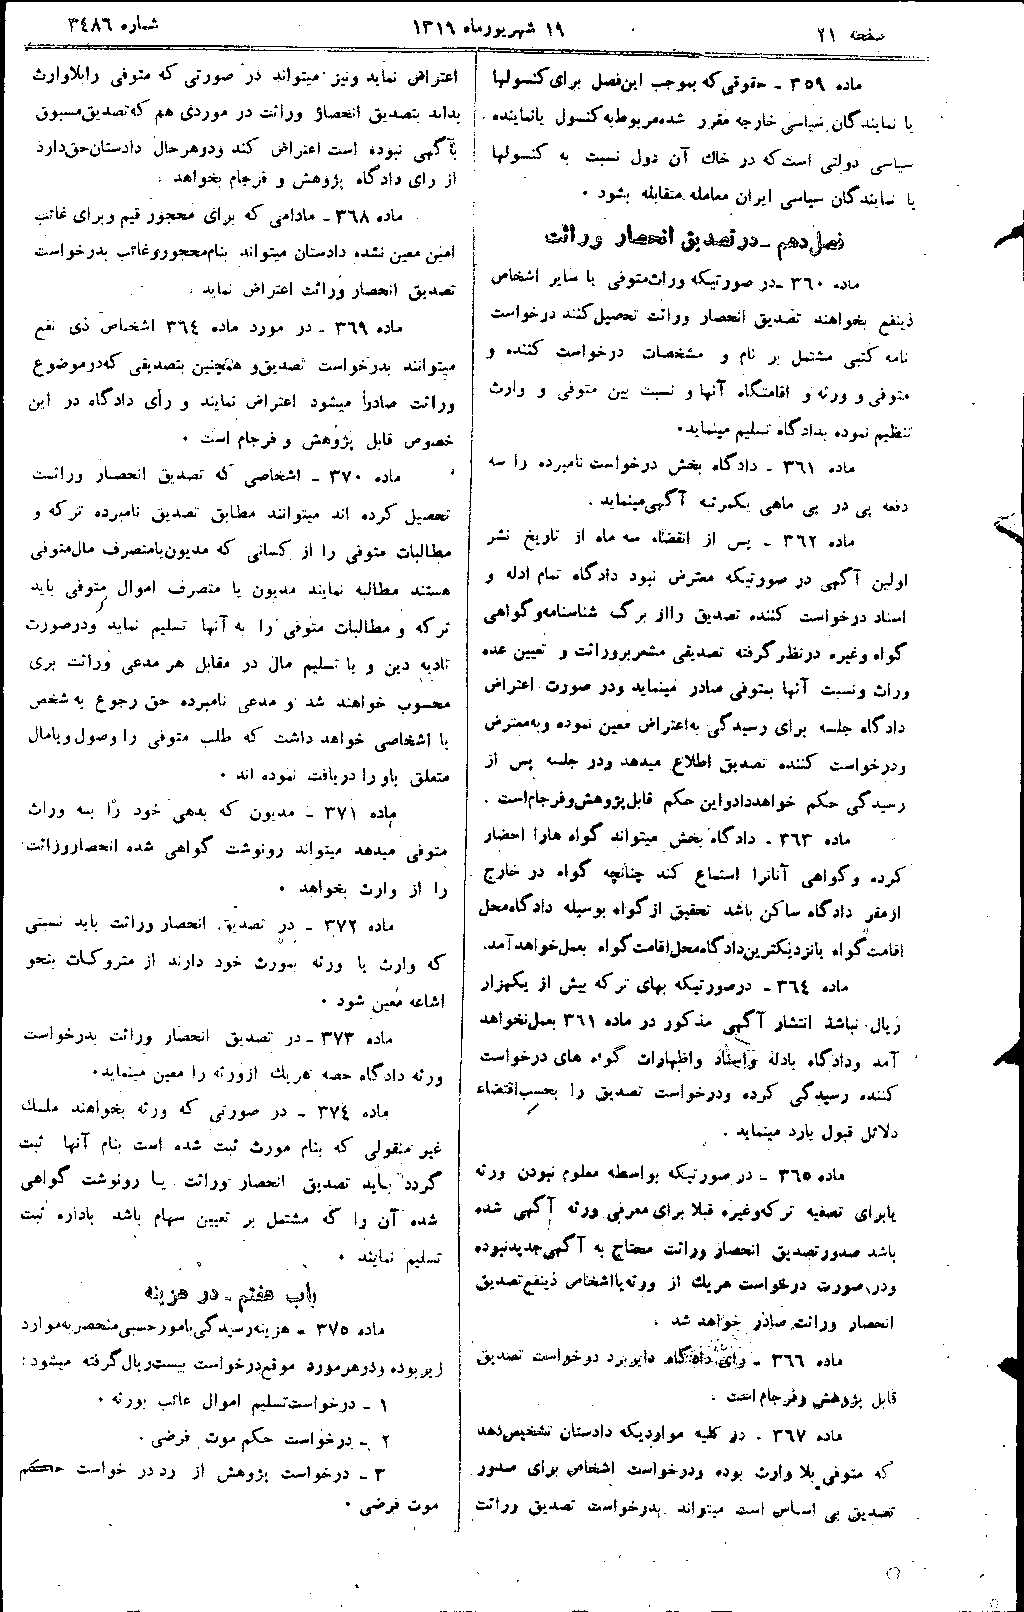 صفحه ۲۱
۱۹ شهریورماه ۱۳۱۹
شماره ۳٤۸۶
ماده ۳۵۹ - حقوقی که بموجب این فصل برای کنسولها
یا نمایندگان سیاسی خارجه مقرر شده مربوط به کنسول یا نماینده
سیاسی دولتی است که در خاك آن دول نسبت به کنسولها
یا نمایندگان سیاسی ایران معامله متقابله بشود ۰
فصل دهم - در تصدیق انحصار وراثت
ماده ۳۶۰ - در صورتیکه وراث متوفی یا سایر اشخاص
ذینفع بخواهند تصدیق انحصار وراثت تحصیل کنند درخواست
نامه کتبی مشتمل بر نام و مشخصات درخواست کننده و
متوفی و ورثه و اقامتگاه آنها و نسبت بین متوفی و وارث
تنظیم نموده بدادگاه تسلیم مینماید۰
ماده ۳۶۱ - دادگاه بخش درخواست نامبرده را سه
دفعه پی در پی ماهی یکمرتبه آگهی مینماید .
ماده ۳۶۲ - پس از انقضاء سه ماه از تاریخ نشر
اولین آگهی در صورتیکه معترض نبود دادگاه تمام ادله و
اسناد درخواست کننده تصدیق را از برگ شناسنامه و گواهی
گواه و غیره در نظر گرفته تصدیقی مشعر بر وراثت و تعیین عده
وراث و نسبت آنها بمتوفی صادر مینماید و در صورت اعتراض
دادگاه جلسه برای رسیدگی به اعتراض معین نموده و به معترض
و درخواست کننده تصدیق اطلاع میدهد و در جلسه پس از
رسیدگی حکم خواهد داد و این حکم قابل پژوهش و فرجام است .
ماده ۳۶۳ - دادگاه بخش میتواند گواه ها را احضار
کرده و گواهی آنان را استماع کند چنانچه گواه در خارج
از مقر دادگاه ساکن باشد تحقیق از گواه بوسیله دادگاه محل
اقامت گواه یا نزدیکترین دادگاه محل اقامت گواه بعمل خواهد آمد.
ماده ۳۶٤ - در صورتیکه بهای ترکه بیش از یکهزار
ریال نباشد انتشار آگهی مذکور در ماده ۳۶۱ بعمل نخواهد
آمد و دادگاه بادله و اسناد و اظهارات گواه های درخواست
کننده رسیدگی کرده و درخواست تصدیق را بحسب اقتضاء
دلائل قبول یا رد مینماید .
ماده ۳۶۵ - در صورتیکه بواسطه معلوم نبودن ورثه
یا برای تصفیه ترکه و غیره قبلا برای معرفی ورثه آگهی شده
باشد صدور تصدیق انحصار وراثت محتاج به آگهی جدید نبوده
و در صورت درخواست هریك از ورثه یا اشخاص ذینفع تصدیق
انحصار وراثت صادر خواهد شد .
ماده ۳۶۶ - رای دادگاه دایر برد درخواست تصدیق
قابل پژوهش و فرجام است .
ماده ۳۶۷ - در کلیه مواردیکه دادستان تشخیص دهد
که متوفی بلا وارث بوده و درخواست اشخاص برای صدور
تصدیق بی اساس است میتواند بدرخواست تصدیق وراثت
اعتراض نماید و نیز میتواند در صورتی که متوفی را بلاوارث
بداند بتصدیق انحصار وراثت در موردی هم که تصدیق مسبوق
بآگهی نبوده است اعتراض کند و در هر حال دادستان حق دارد
از رای دادگاه پژوهش و فرجام بخواهد .
ماده ۳۶۸ - مادامی که برای محجور قیم و برای غائب
امین معین نشده دادستان میتواند بنام محجور و غائب بدرخواست
تصدیق انحصار وراثت اعتراض نماید .
ماده ۳۶۹ - در مورد ماده ۳۶٤ اشخاص ذی نفع
میتوانند بدرخواست تصدیق و همچنین بتصدیقی که در موضوع
وراثت صادر میشود اعتراض نمایند و رأی دادگاه در این
خصوص قابل پژوهش و فرجام است ۰
ماده ۳۷۰ - اشخاصی که تصدیق انحصار وراثت
تحصیل کرده اند میتوانند مطابق تصدیق نامبرده ترکه و
مطالبات متوفی را از کسانی که مدیون یا متصرف مال متوفی
هستند مطالبه نمایند مدیون یا متصرف اموال متوفی باید
ترکه و مطالبات متوفی را به آنها تسلیم نماید و در صورت
تادیه دین و یا تسلیم مال در مقابل هر مدعی وراثت بری
محسوب خواهند شد و مدعی نامبرده حق رجوع به شخص
یا اشخاصی خواهد داشت که طلب متوفی را وصول و یا مال
متعلق باو را دریافت نموده اند ۰
ماده ۳۷۱ - مدیون که بدهی خود را به وراث
متوفی میدهد میتواند رونوشت گواهی شده انحصار وراثت
را از وارث بخواهد ۰
ماده ۳۷۲ - در تصدیق انحصار وراثت باید نسبتی
که وارث یا ورثه بمورث خود دارند از متروکات بنحو
اشاعه معین شود ۰
ماده ۳۷۳ - در تصدیق انحصار وراثت بدرخواست
ورثه دادگاه حصه هریك از ورثه را معین مینماید۰
ماده ۳۷٤ - در صورتی که ورثه بخواهند ملك
غیر منقولی که بنام مورث ثبت شده است بنام آنها ثبت
گردد باید تصدیق انحصار وراثت یا رونوشت گواهی
شده آن را که مشتمل بر تعیین سهام باشد باداره ثبت
تسلیم نمایند ۰
باب هفتم - در هزینه
ماده ۳۷۵ - هزینه رسیدگی بامور حسبی منحصر به موارد
زیر بوده و در هر مورد موقع درخواست بیست ریال گرفته میشود :
۱ - درخواست تسلیم اموال غائب بورثه ۰
۲ - درخواست حکم موت فرضی .
۳ - درخواست پژوهش از رد درخواست حکم
موت فرضی ۰